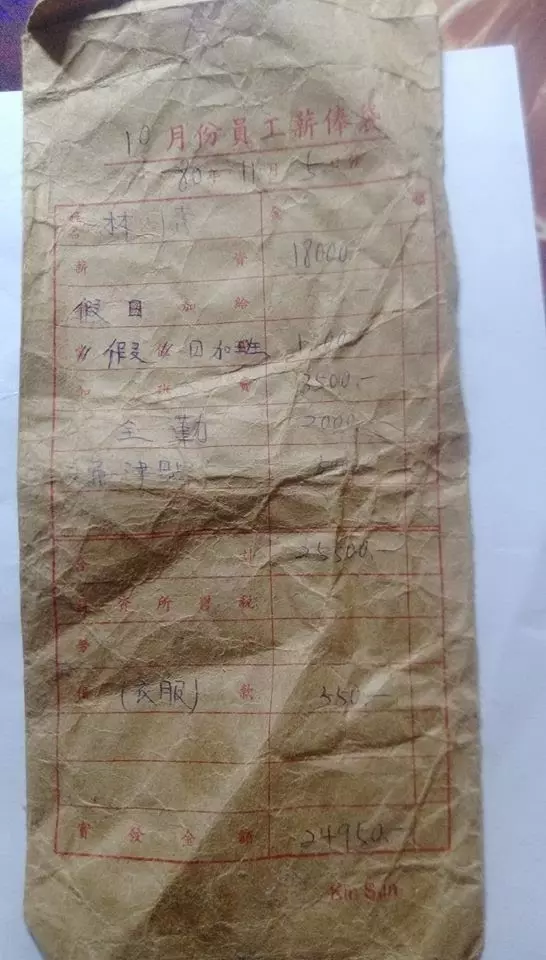 10月份員工薪俸袋
80年11月5日
姓名 林 金 額
薪資 18000.-
假日加給 -
假日加班
加班費 3500.-
全勤 2000
津貼
合計 25500.-
所得稅
勞
借(衣服)款 550.-
實發金額 24950.-
Kin Sun